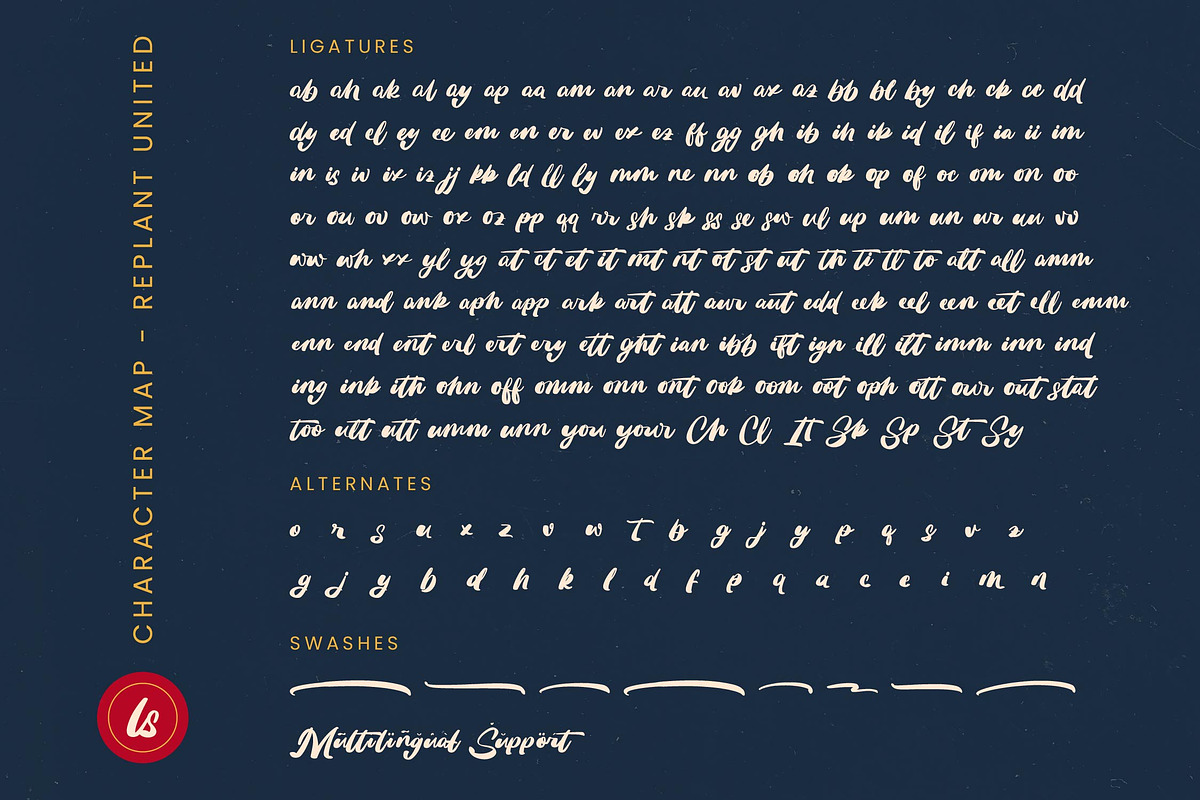 CHARACTER MAP - REPLANT UNITED
ls
LIGATURES
ab ah ak al ay ap aa am an ar au av ax az bb bl by ch ck cc dd
dy ed el ey ee em en er ev ex ez ff gg gh ib ih ik id il if ia ii im
in is iv ix iz jj kk ld ll ly mm ne nn ob oh ok op of oc om on oo
or ou ov ow ox oz pp qq rr sh sk ss se sw ul up um un ur uu vv
ww wh xx yl yg at ct et it mt nt ot st ut th ti tl to att all amm
ann and ank aph app ark art att awr aut edd eek eel een eet ell emm
enn end ent erl ert ery ett ght ian ibb ift ign ill ilt imm inn ind
ing ink ith ohn off omm onn ont ook oom oot oph ott owr out stat
too ult utt umm unn you your Ch Cl It Sk Sp St Sy
ALTERNATES
o r s u x z v w T b g j y p q s v z
g j y b d h k l d f p q a c e i m n
SWASHES
Mültilïñgúal Šüppört